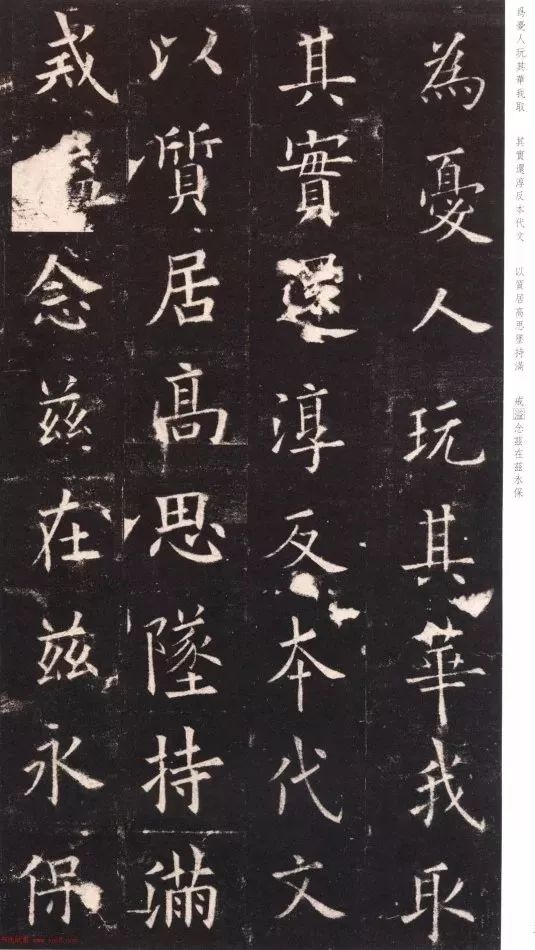 為憂人玩其華我取
其實還淳反本代文
以質居高思墜持滿
戒念茲在茲永保
爲憂人玩其華我取 其實還淳反本代文 以質居高思墜持滿 戒溢念茲在茲永保